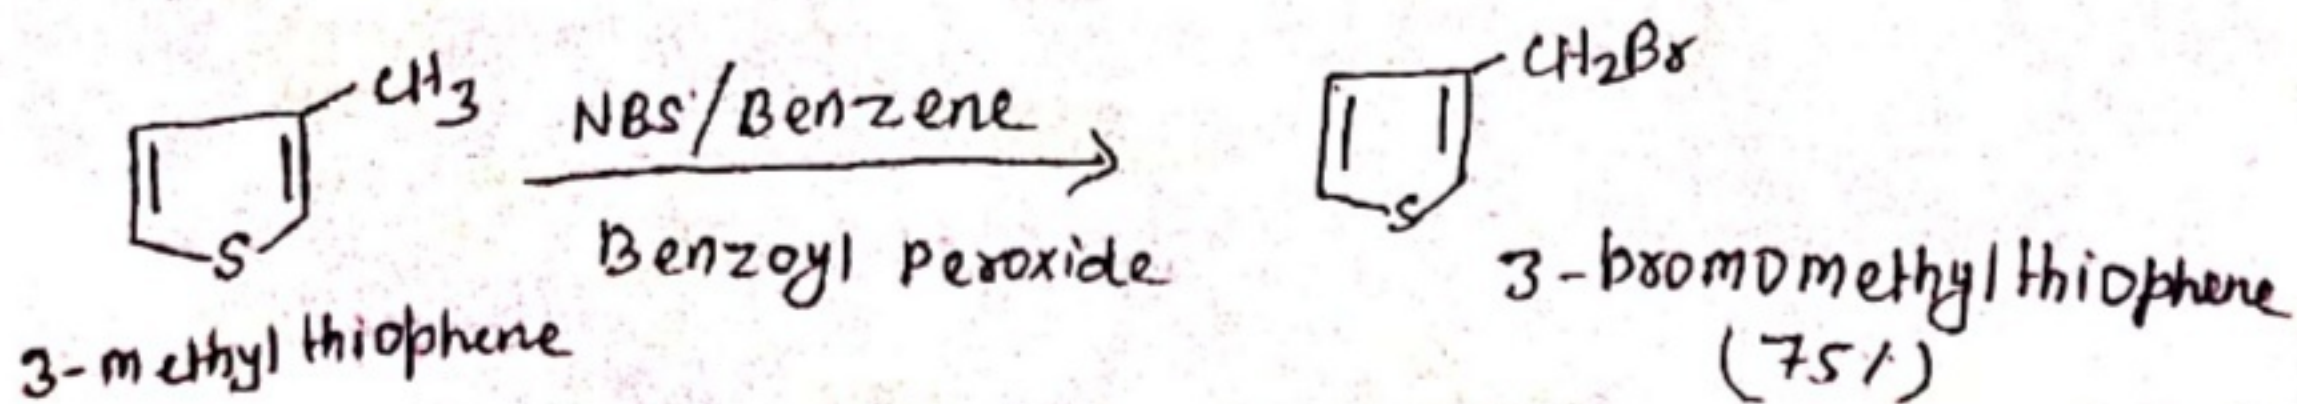 CH3
NBS/Benzene
Benzoyl Peroxide
S
3-methyl thiophene
CH2Br
S
3-bromomethyl thiophene
(75%)